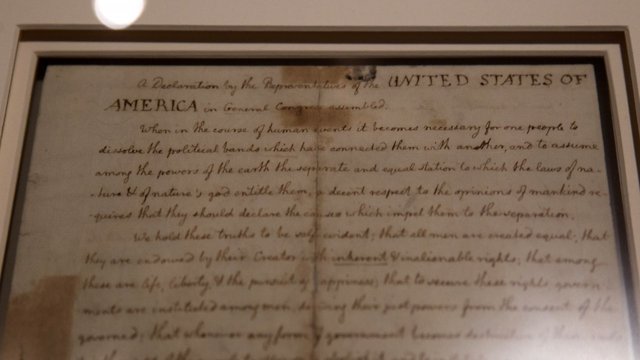 A Declaration by the Representatives of the UNITED STATES OF
AMERICA in General Congress assembled.
When in the course of human events it becomes necessary for one people to
dissolve the political bands which have connected them with another, and to assume
among the powers of the earth the separate and equal station to which the laws of na-
ture & of nature's god entitle them, a decent respect to the opinions of mankind re-
quires that they should declare the causes which impel them to the separation.
We hold these truths to be self evident; that all men are created equal; that
they are endowed by their Creator with inherent & inalienable rights; that among
these are life, liberty, & the pursuit of happiness; that to secure these rights, govern-
ments are instituted among men, deriving their just powers from the consent of the
governed; that whenever any form of government becomes destructive of these